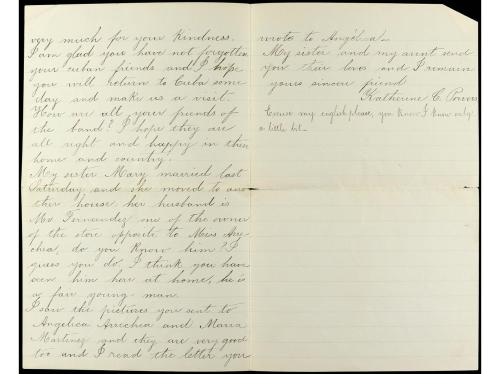 very much for your kindness.
I am glad you have not forgotten
your cuban friends and I hope
you will return to Cuba some
day and make us a visit.
How are all your friends of
the band? I hope they are
all right and happy in their
home and country.
My sister Mary married last
Saturday and she moved to ano
ther house her husband is
Mr. Fernandez one of the owner
of the store opposite to Mrs Arre
chea, do you Know him? I
guess you do I think you have
seen him here at home, he is
a fair young man.
I saw the pictures you sent to
Angelica Arrechea and Maria
Martinez and they are very good
too and I read the letter you
wrote to Angelica.
My sister and my aunt send
you their love and I remain
yours sincere friend
Katherine C.
Excuse my english please, you Know I know only
a little bit.